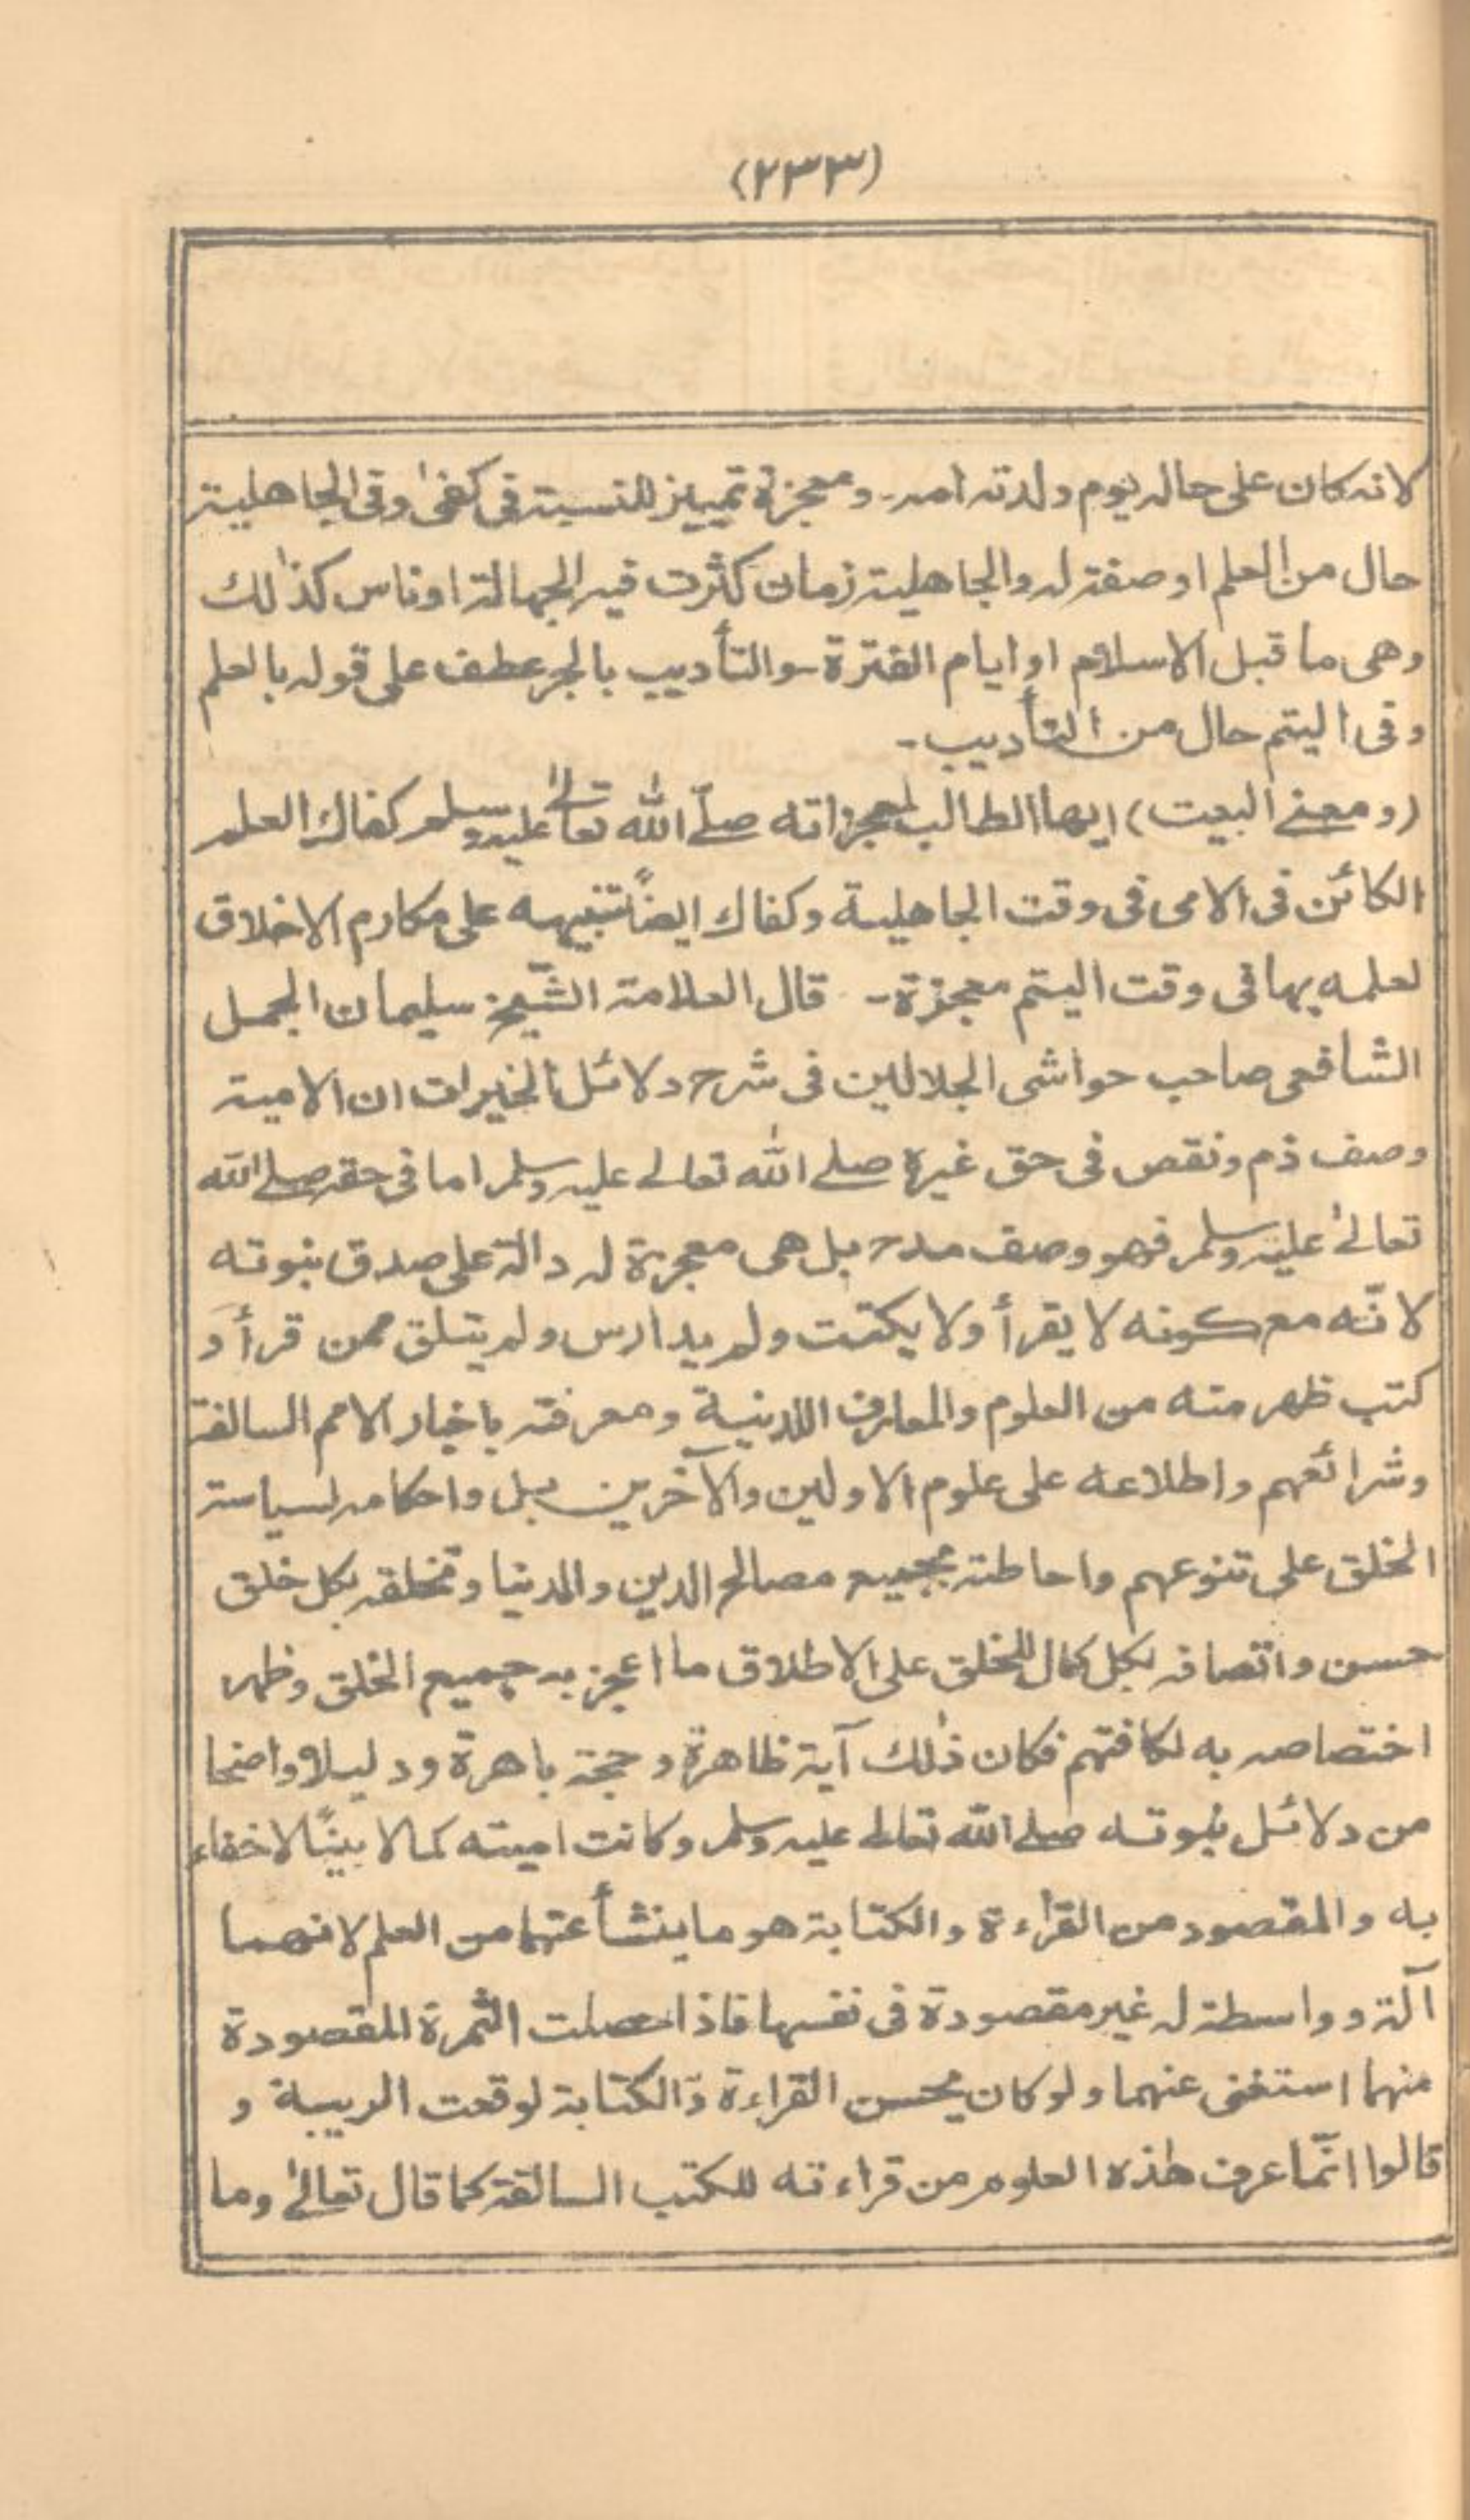 (٢٣٣)
لانه كان على حاله يوم ولدته امه - ومعجزة تمييز للنسبة فى كفىٰ وفى الجاهلية
حال من العلم او صفة له والجاهلية زمان كثرت فيه الجهالة او ناس كذٰلك
وهى ما قبل الاسلام او ايام الفترة - والتأديب بالجر عطف على قوله بالعلم
وفى اليتم حال من التأديب -
(ومعنے البيت) ايها الطالب لمعجزاته صلّے اللّٰه تعالےٰ عليه وسلم كفاك العلم
الكائن فى الامى فى وقت الجاهلية وكفاك ايضاً تنبيهه على مكارم الاخلاق
لعلمه بها فى وقت اليتم معجزة - قال العلامة الشّيخ سليمان الجمل
الشافعى صاحب حواشى الجلالين فى شرح دلائل الخيرات ان الامية
وصف ذم ونقص فى حق غيره صلے اللّٰه تعالے عليه وسلم اما فى حقه صلے اللّٰه
تعالےٰ عليه وسلم فهو وصف مدح بل هى معجزة له دالة على صدق نبوته
لانّه مع كونه لا يقرأ ولا يكتب ولم يدارس ولم يتلق ممن قرأ و
كتب ظهر منه من العلوم والمعارف اللدنية ومعرفته باخبار الامم السالفة
وشرائعهم واطلاعه على علوم الاولين والآخرين بل واحكامه لسياسة
الخلق على تنوعهم واحاطته بجميع مصالح الدين والدنيا وتخلقه بكل خلق
حسن واتصافه بكل كمال للخلق على الاطلاق ما اعجز به جميع الخلق وظهر
اختصاصه به لكافتهم فكان ذٰلك آية ظاهرة وحجة باهرة ودليلا واضحا
من دلائل نبوته صلے اللّٰه تعالے عليه وسلم وكانت اميته كمالا بينًا لا خفاء
به والمقصود من القراءة والكتابة هو ما ينشأ عنهما من العلم لانهما
آلة وواسطة له غير مقصودة فى نفسها فاذا حصلت الثمرة المقصودة
منهما استغنى عنهما ولو كان يحسن القراءة والكتابة لوقعت الريبة و
قالوا انّما عرف هٰذه العلوم من قراءته للكتب السالفة كما قال تعالےٰ وما